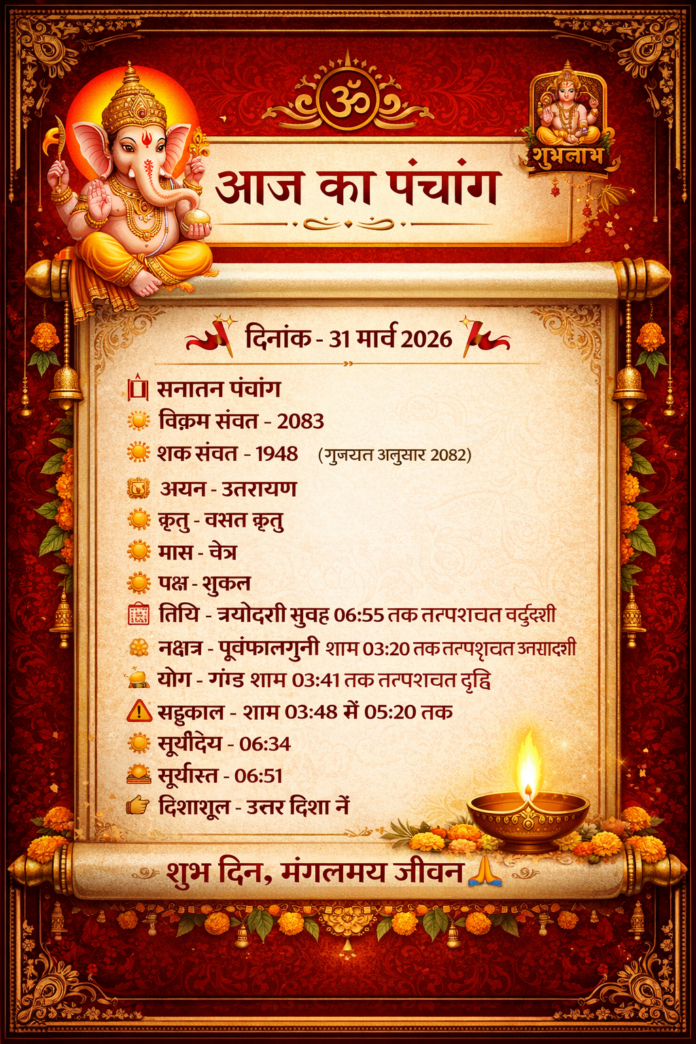 ॐ
शुभलाभ
आज का पंचांग
दिनांक - 31 मार्व 2026
सनातन पंवांग
विक्रम संवत - 2083
शक संवत - 1948 (गुजयत अनुसार 2082)
अयन - उतरायण
क्रृतु - वसत क्रृतु
मास - चेत्र
पक्ष - शुकल
तिथि - त्रयोदशी सुवह 06:55 तक तत्पशचत वर्दुदशी
नक्षत्र - पूवंफालगुनी शाम 03:20 तक तत्पशृचत उत्तसादशी
योग - गंग्ड शाम 03:41 तक तत्पशचत दृद्वि
सहुकाल - शाम 03:48 में 05:20 तक
सूर्यीदेय - 06:34
सूर्यास्त - 06:51
दिशाशूल - उत्तर दिशा नें
शुभ दिन, मंगलमय जीवन